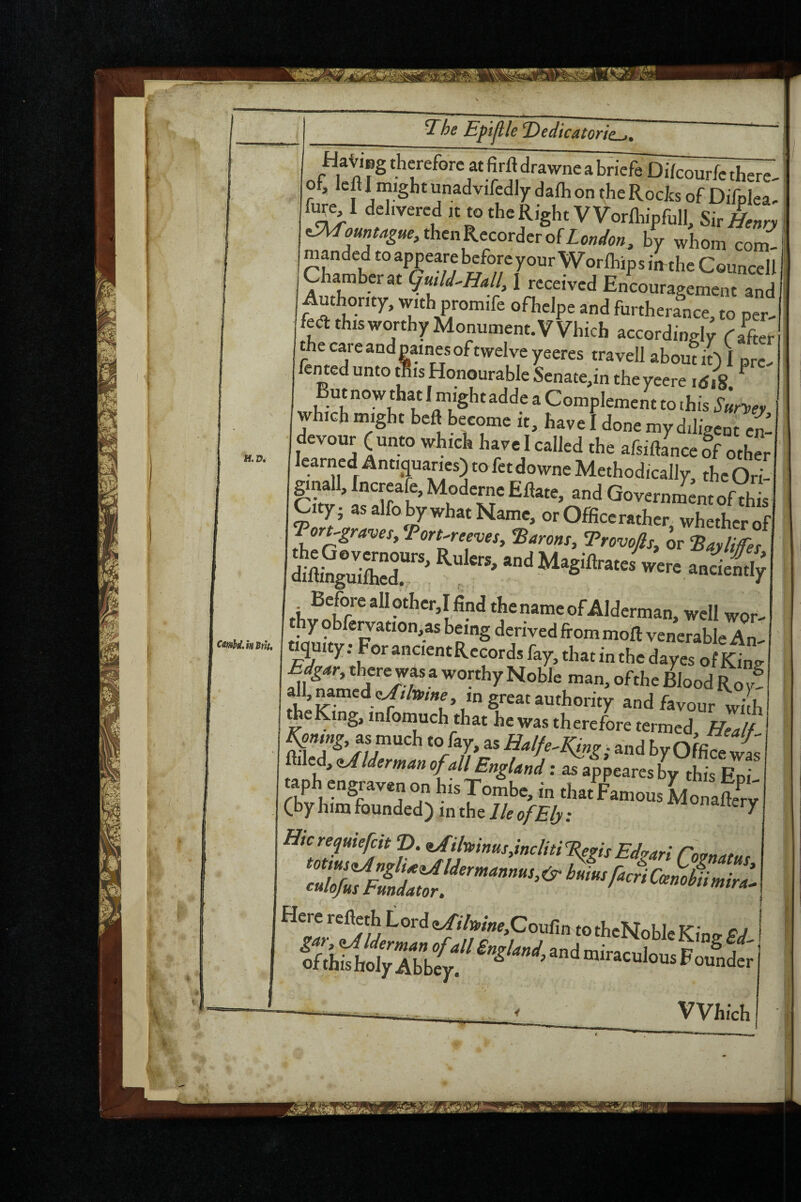 The Epistle Dedicatorie.
Having therefore at first drawne a briefe Discourse there-
of, lest I might unadvisedly dash on the Rocks of Displea-
sure, I delivered it to the Right VVorshipfull, Sir Henry
Mountague, then Recorder of London, by whom com-
manded to appeare before your Worships in the Councell
Chamber at Guild-Hall, I received Encouragement and
Authority, with promise of helpe and furtherance, to per-
fect this worthy Monument. VVhich accordingly (after
the care and paines of twelve yeeres travell about it) I pre-
sented unto this Honourable Senate, in the yeere 1618.
But now that I might adde a Complement to this Survey,
which might best become it, have I done my diligent en-
devour (unto which have I called the assistance of other
H. D.
learned Antiquaries) to set downe Methodically, the Ori-
ginall, Increase, Moderne Estate, and Government of this
City; as also by what Name, or Office rather, whether of
Port-graves, Port-reeves, Barons, Provosts, or Bayliffes,
the Governours, Rulers, and Magistrates were anciently
distinguished.
Before all other, I find the name of Alderman, well wor-
thy observation, as being derived from most venerable An-
Cambd. in Brit.
tiquity: For ancient Records say, that in the dayes of King
Edgar, there was a worthy Noble man, of the Blood Roy-
all, named Ailwine, in great authority and favour with
the King, insomuch that he was therefore termed, Healf-
Koning, as much to say, as Halfe-King; and by Office was
stiled, Alderman of all England: as appeares by this Epi-
taph engraven on his Tombe, in that Famous Monastery
(by him founded) in the Ile of Ely:
Hic requiescit D. Ailwinus, incliti Regis Edgari Cognatus,
totius Angliæ Aldermannus, & huius sacri Cœnobii mira-
culosus Fundator.
Here resteth Lord Ailwine, Cousin to the Noble King Ed-
gar, Alderman of all England, and miraculous Founder
of this holy Abbey.
VVhich